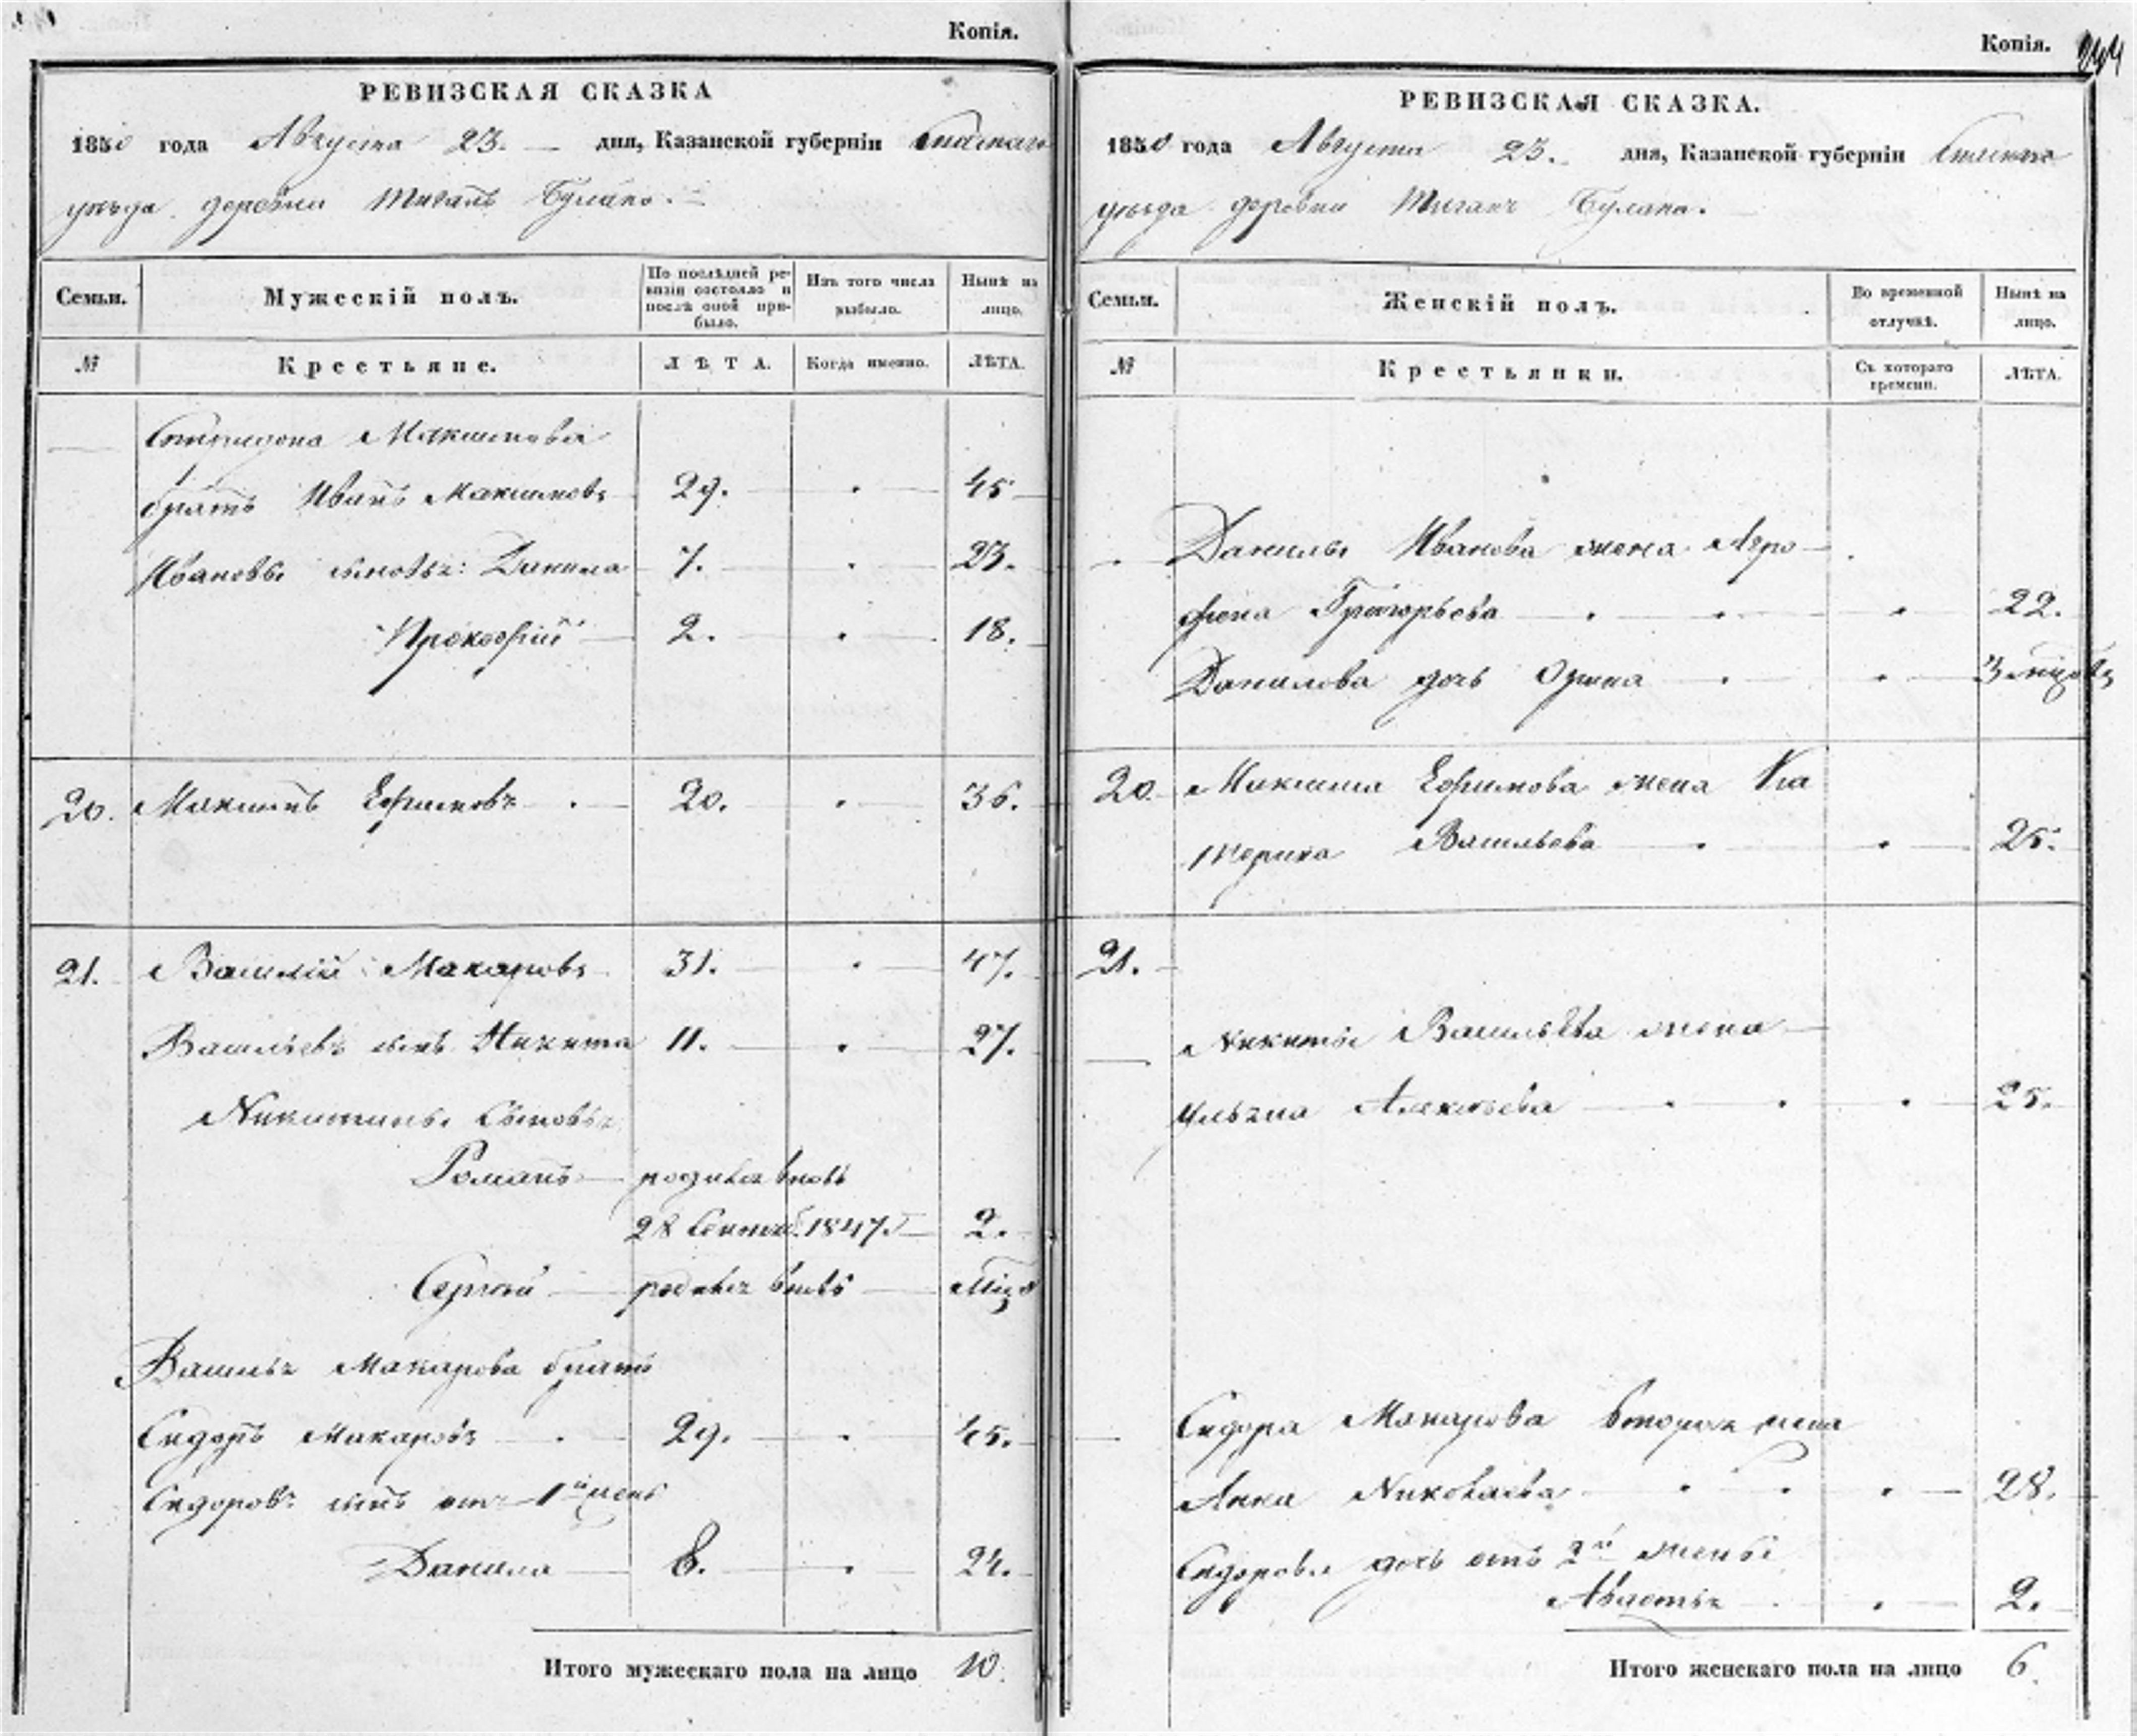 Копія.
РЕВИЗСКАЯ СКАЗКА
1850 года Августа 23. дня, Казанской губерніи Спаскаго
уѣзда деревни Тиганъ Булака.
Семьи.
Мужескій полъ.
По послѣдней ре-
визіи состояло и
послѣ оной при-
было.
Изъ того числа
выбыло.
Нынѣ на
лицо.
№
Крестьяне.
ЛѢТА.
Когда именно.
ЛѢТА.
Спиридона Максимова
братъ Иванъ Максимовъ 29. 45
Ивановы сыновья: Данила 7. 23.
Прокофій 2. 18.
20. Максимъ Ефимовъ 20. 36.
21. Василій Макаровъ 31. 47.
Васильевъ сынъ Никита 11. 27.
Никитины Сыновья
Романъ родился вновь
28 Сентяб. 1847 г. 2.
Сергей родился вновь
Василья Макарова братъ
Сидоръ Макаровъ 29. 45.
Сидоровъ сынъ отъ 1й жены
Данила 8. 24.
Итого мужескаго пола на лицо 10.
Копія. 244
РЕВИЗСКАЯ СКАЗКА.
1850 года Августа 23. дня, Казанской губерніи Спаскаго
уѣзда деревни Тиганъ Булака.
Семьи.
Женскій полъ.
Во временной
отлучкѣ.
Нынѣ на
лицо.
№
Крестьянки.
Съ котораго
времени.
ЛѢТА.
Данилы Иванова жена Агро-
фена Григорьева 22.
Данилова дочь Орина 3 мѣсяцовъ
20. Максима Ефимова жена Ка
терина Васильева 25.
21.
Никиты Васильева жена
Ульяна Алексѣева 25.
Сидора Макарова вторая жена
Анна Николаева 28.
Сидорова дочь отъ 2й жены
Авдотья 2.
Итого женскаго пола на лицо 6.